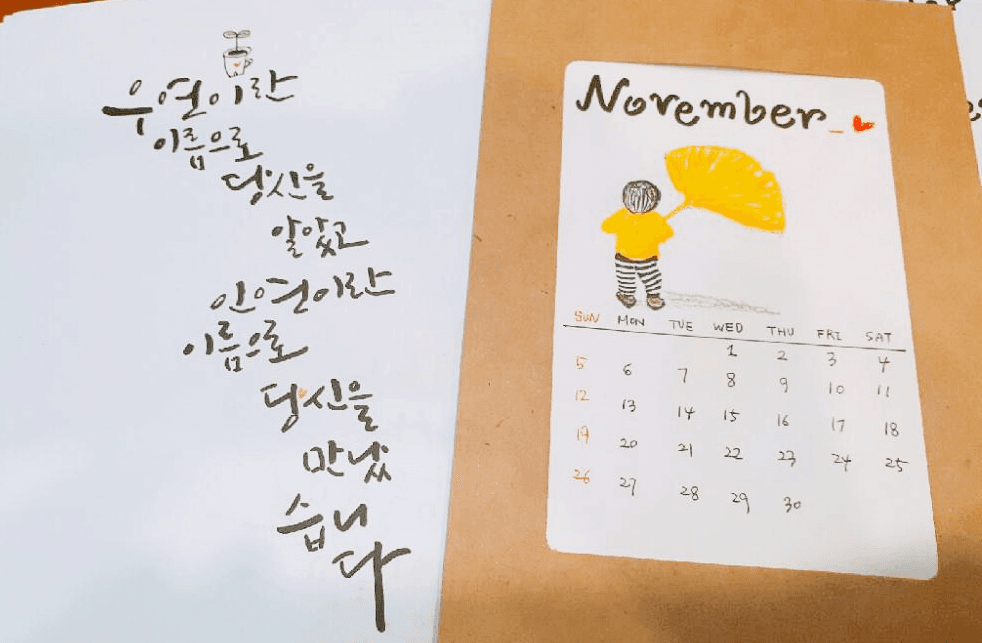 우연이란
이름으로
당신을
알았고
인연이란
이름으로
당신을
만났
습니
다
November
SUN MON TUE WED THU FRI SAT
1 2 3 4
5 6 7 8 9 10 11
12 13 14 15 16 17 18
19 20 21 22 23 24 25
26 27 28 29 30